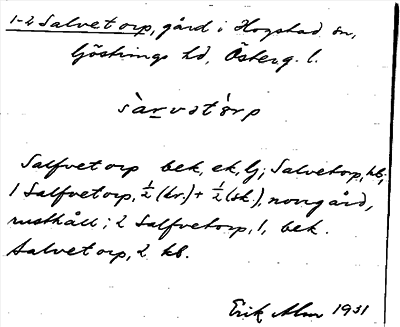 1-2 Salvetorp, gård i Hogstad sn,
Göstrings hd, Österg. l.
sàrvətò̀rp
Salfvetorp bek, ek, lj; Salvetorp, kb;
1 Salfvetorp, ½ (kr.) + ½ (sk.), norrgård,
rusthåll; 2 Salfvetorp, 1, bek.
Salvetorp, 2 kb.
Erik Alm 1931